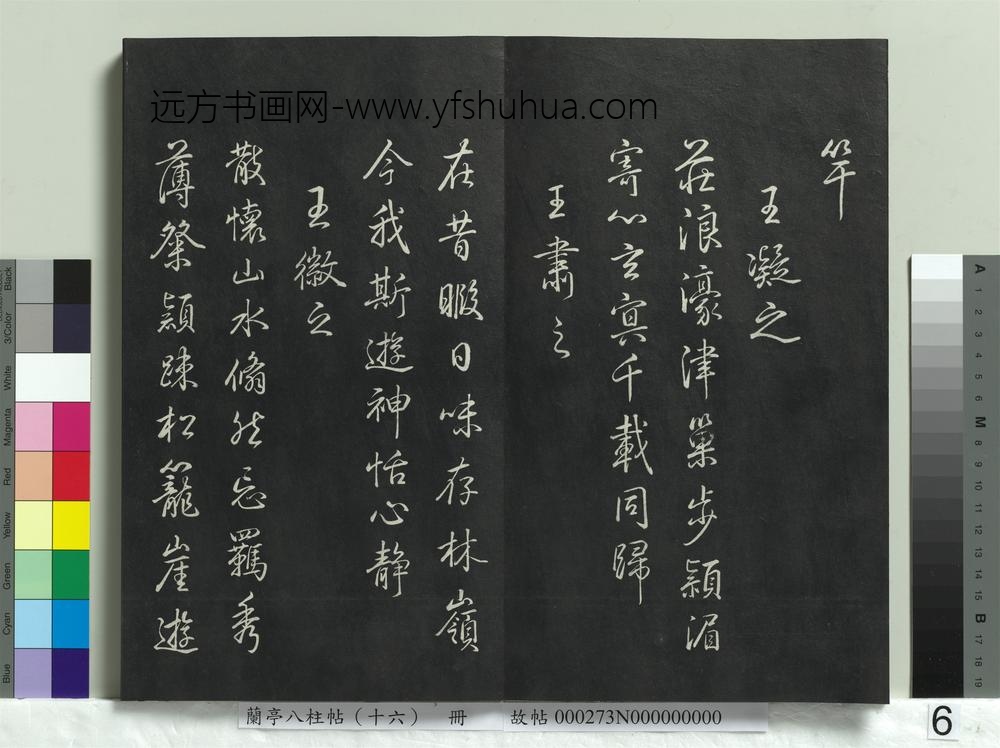 远方书画网-www.yfshuhua.com
竿
王凝之
莊浪濠津巢步潁湄
寄心玄冥千載同歸
王肅之
在昔暇日味存林嶺
今我斯遊神恬心静
王徽之
散懷山水翛然忘羈秀
薄粲穎踈松籠崖遊
蘭亭八柱帖（十六） 冊 故帖 000273N000000000
6
Black
3/Color
White
Magenta
Red
Yellow
Green
Cyan
Blue
A 1 2 3 4 5 6 M 8 9 10 11 12 13 14 15 B 17 18 19